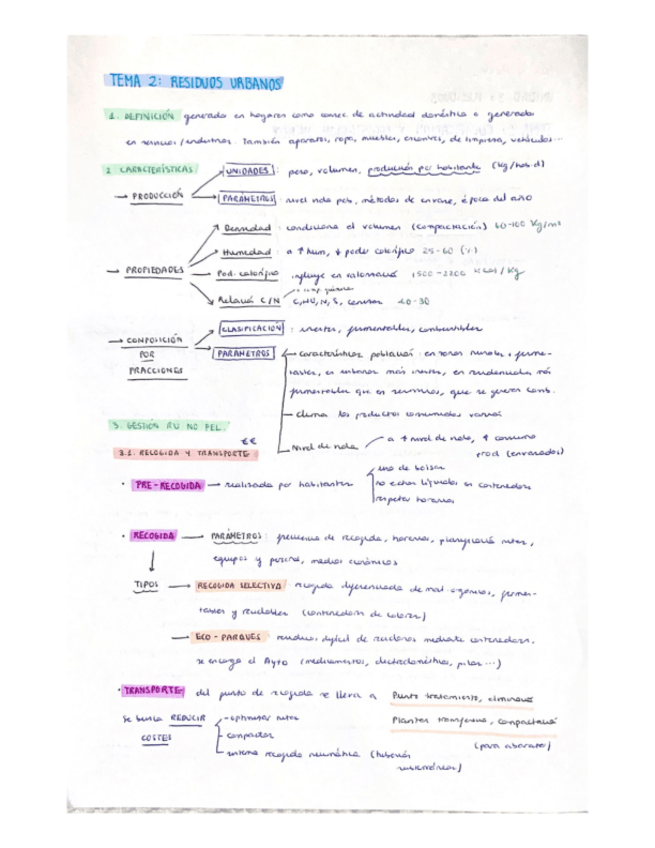 TEMA 2: RESIDUOS URBANOS
1. DEFINICIÓN generada en hogares como consec. de actividad doméstica o generada
en servicios / industrias. También aparatos, ropa, muebles, enseres, de limpieza, vehículos...
2. CARACTERÍSTICAS
→ PRODUCCIÓN
UNIDADES: peso, volumen, producción por habitante (kg/hab.d)
PARÁMETROS: nivel vida pob, métodos de envase, época del año
→ PROPIEDADES
Densidad: condiciona el volumen (compactación)
Humedad: a ↑ hum, ↓ poder calorífico 25-60 (%)
Pod. calorífico influye en valorización kcal/kg
Relación C/N C, N, S, cenizas 20-30
→ COMPOSICIÓN POR FRACCIONES
CLASIFICACIÓN: inertes, fermentables, combustibles
PARÁMETROS
características población: en zonas rurales + ferme-
tables, en urbanas más inertes, en residenciales más
fermentables que en servicios, que se generan comb.
- clima los productos consumidos varían
- Nivel de vida a ↑ nivel de vida, ↑ consumo
prod. (envasados)
3. GESTIÓN RU NO PEL.
€€
3.1. RECOGIDA Y TRANSPORTE
· PRE-RECOGIDA → realizada por habitantes
uso de bolsas
no echar líquidos en contenedores
respetar horarios
· RECOGIDA → PARÁMETROS: frecuencia de recogida, horarios, planificación rutas,
equipos y personal, medios económicos
TIPOS → RECOGIDA SELECTIVA: recogida diferenciada de mat. orgánica, fermen-
tables y reciclables (contenedores de colores)
→ ECO-PARQUES: residuos difícil de reciclar mediante contenedores.
se encarga el Ayto (medicamentos, electrodomésticos, pilas...)
· TRANSPORTE: del punto de recogida se lleva a Punto tratamiento, eliminación
Plantas transferencia, compactación
(para abaratar)
Se busca REDUCIR COSTES
- optimizar rutas
- compactar
- sistema recogida neumática (tuberías
subterráneas)